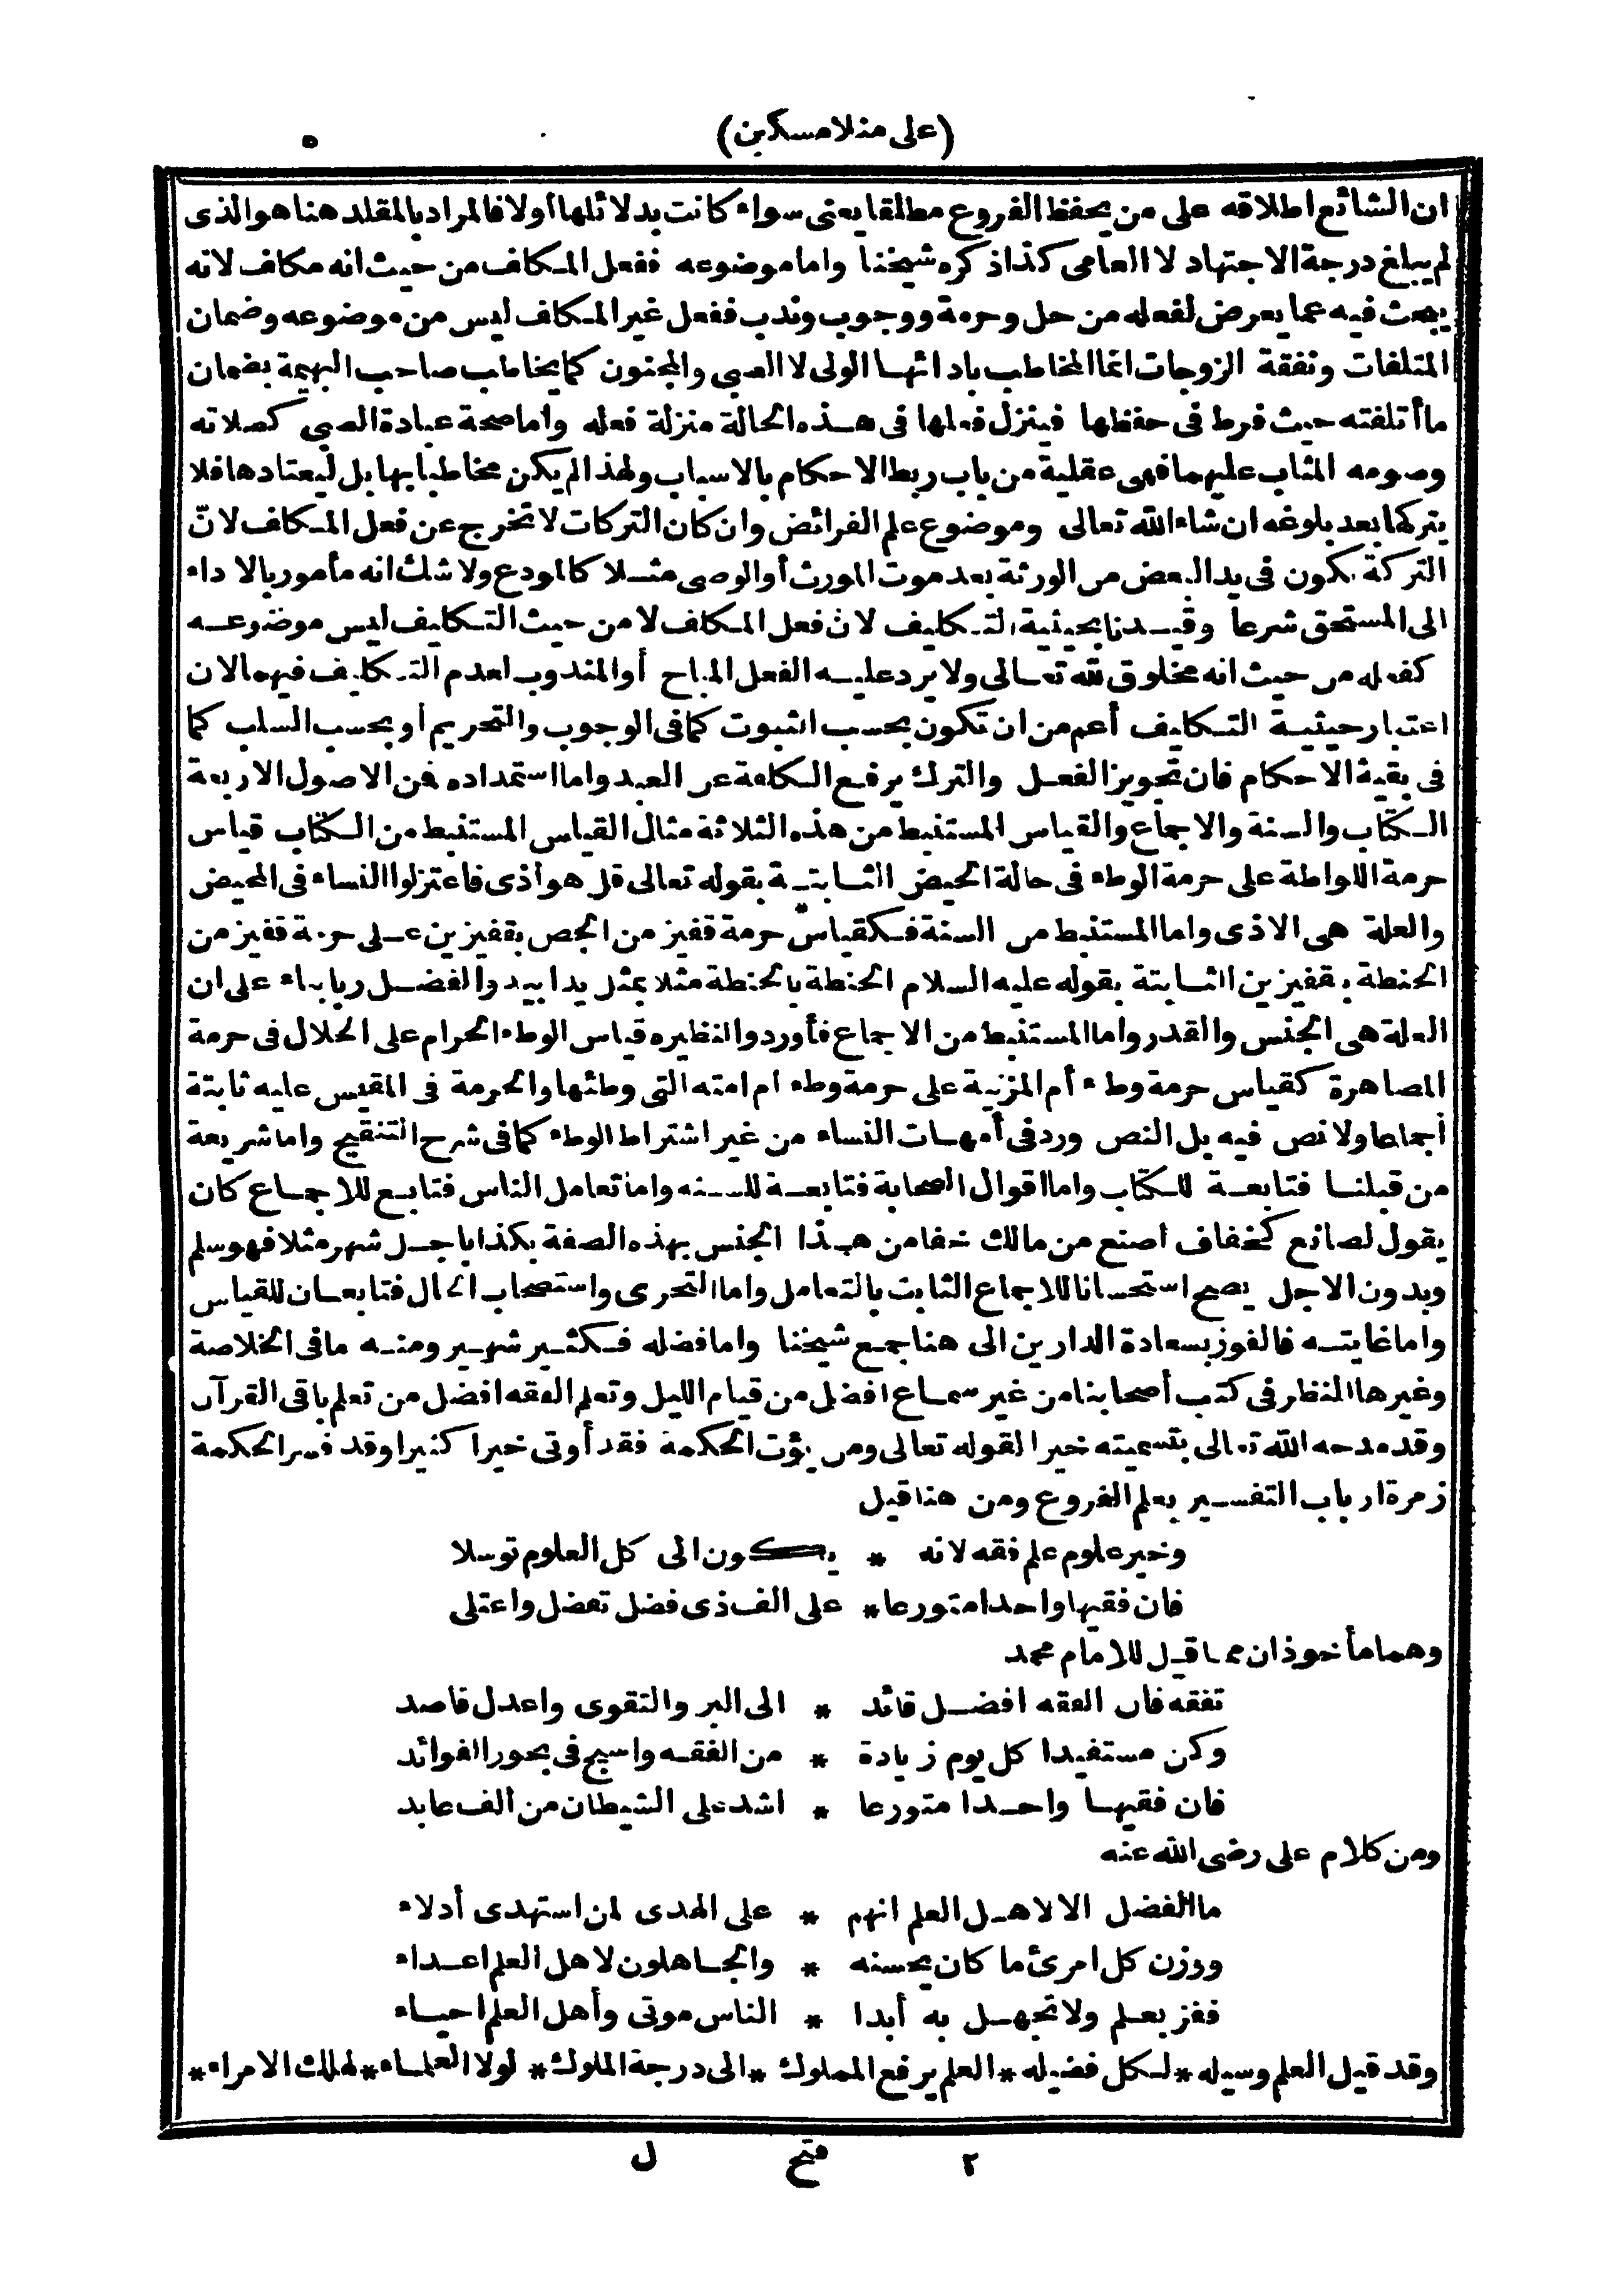 (على منلا مسكين)
٥
ان الشائع اطلاقه على من يحفظ الفروع مطلقا يعنى سواء كانت بدلائلها أولا فالمراد بالمقلد هنا هو الذى
لم يبلغ درجة الاجتهاد لا العامى كذا ذكره شيخنا واما موضوعه ففعل المكلف من حيث انه مكلف لانه
يبحث فيه عما يعرض لفعله من حل وحرمة ووجوب وندب ففعل غير المكلف ليس من موضوعه وضمان
المتلفات ونفقة الزوجات انما المخاطب بادائها الولى لا الصبى والمجنون كما يخاطب صاحب البهيمة بضمان
ما أتلفته حيث فرط فى حفظها فينزل فعلها فى هذه الحالة منزلة فعله واما صحة عبادة الصبى كصلاته
وصومه المثاب عليهما فهى عقلية من باب ربط الاحكام بالاسباب ولهذا لم يكن مخاطبا بها بل ليعتادها فلا
يتركها بعد بلوغه ان شاء الله تعالى وموضوع علم الفرائض وان كان التركات لا تخرج عن فعل المكلف لانّ
التركة تكون فى يد البعض من الورثة بعد موت المورث أو الوصى مثلا كالمودع ولا شك انه مأمور بالاداء
الى المستحق شرعا وقيدنا بحيثية التكليف لان فعل المكلف لا من حيث التكليف ليس موضوعه
كفعله من حيث انه مخلوق لله تعالى ولا يرد عليه الفعل المباح أو المندوب لعدم التكليف فيهما لان
اعتبار حيثية التكليف أعم من ان تكون بحسب الثبوت كما فى الوجوب والتحريم أو بحسب السلب كما
فى بقية الاحكام فان تجويز الفعل والترك يرفع الكلفة عن العبد واما استمداده فمن الاصول الاربعة
الكتاب والسنة والاجماع والقياس المستنبط من هذه الثلاثة مثال القياس المستنبط من الكتاب قياس
حرمة اللواطة على حرمة الوطء فى حالة الحيض الثابتة بقوله تعالى قل هو أذى فاعتزلوا النساء فى المحيض
والعلة هى الاذى واما المستنبط من السنة فكقياس حرمة قفيز من الجص بقفيزين على حرمة قفيز من
الحنطة بقفيزين الثابتة بقوله عليه السلام الحنطة بالحنطة مثلا بمثل يدا بيد والفضل ربا بناء على ان
العلة هى الجنس والقدر واما المستنبط من الاجماع فأوردوا لنظيره قياس الوطء الحرام على الحلال فى حرمة
المصاهرة كقياس حرمة وطء أم المزنية على حرمة وطء ام امته التى وطئها والحرمة فى المقيس عليه ثابتة
أجماعا ولا نص فيه بل النص ورد فى أمهات النساء من غير اشتراط الوطء كما فى شرح التنقيح واما شريعة
من قبلنا فتابعة للكتاب واما اقوال الصحابة فتابعة للسنه واما تعامل الناس فتابع للاجماع كان
يقول لصانع كخفاف اصنع من مالك خفا من هذا الجنس بهذه الصفة بكذا باجل شهر مثلا فهو سلم
وبدون الاجل يصح استحسانا للاجماع الثابت بالتعامل واما التحرى واستصحاب الحال فتابعان للقياس
واما غايته فالفوز بسعادة الدارين الى هنا جمع شيخنا واما فضله فكثير شهير ومنه ما فى الخلاصة
وغيرها النظر فى كتب أصحابنا من غير سماع افضل من قيام الليل وتعلم الفقه افضل من تعلم باقى القرآن
وقد مدحه الله تعالى بتسميته خيرا لقوله تعالى ومن يؤت الحكمة فقد أوتى خيرا كثيرا وقد فسر الحكمة
زمرة ارباب التفسير بعلم الفروع ومن هنا قيل
وخير علوم علم فقه لانه * يكون الى كل العلوم توسلا
فان فقيها واحدا متورعا * على الف ذى فضل تفضل واعتلى
وهما مأخوذان مما قيل للامام محمد
تفقه فان الفقه افضل قائد * الى البر والتقوى واعدل قاصد
وكن مستفيدا كل يوم زيادة * من الفقه واسبح فى بحور الفوائد
فان فقيها واحدا متورعا * اشد على الشيطان من ألف عابد
ومن كلام على رضى الله عنه
ما الفضل الا لاهل العلم انهم * على الهدى لمن استهدى أدلاء
ووزن كل امرئ ما كان يحسنه * والجاهلون لاهل العلم اعداء
ففز بعلم ولا تجهل به أبدا * الناس موتى وأهل العلم احياء
وقد قيل العلم وسيله * لكل فضيله * العلم يرفع المملوك * الى درجة الملوك * لولا العلماء * لهلك الامراء *
٢ فتح ل